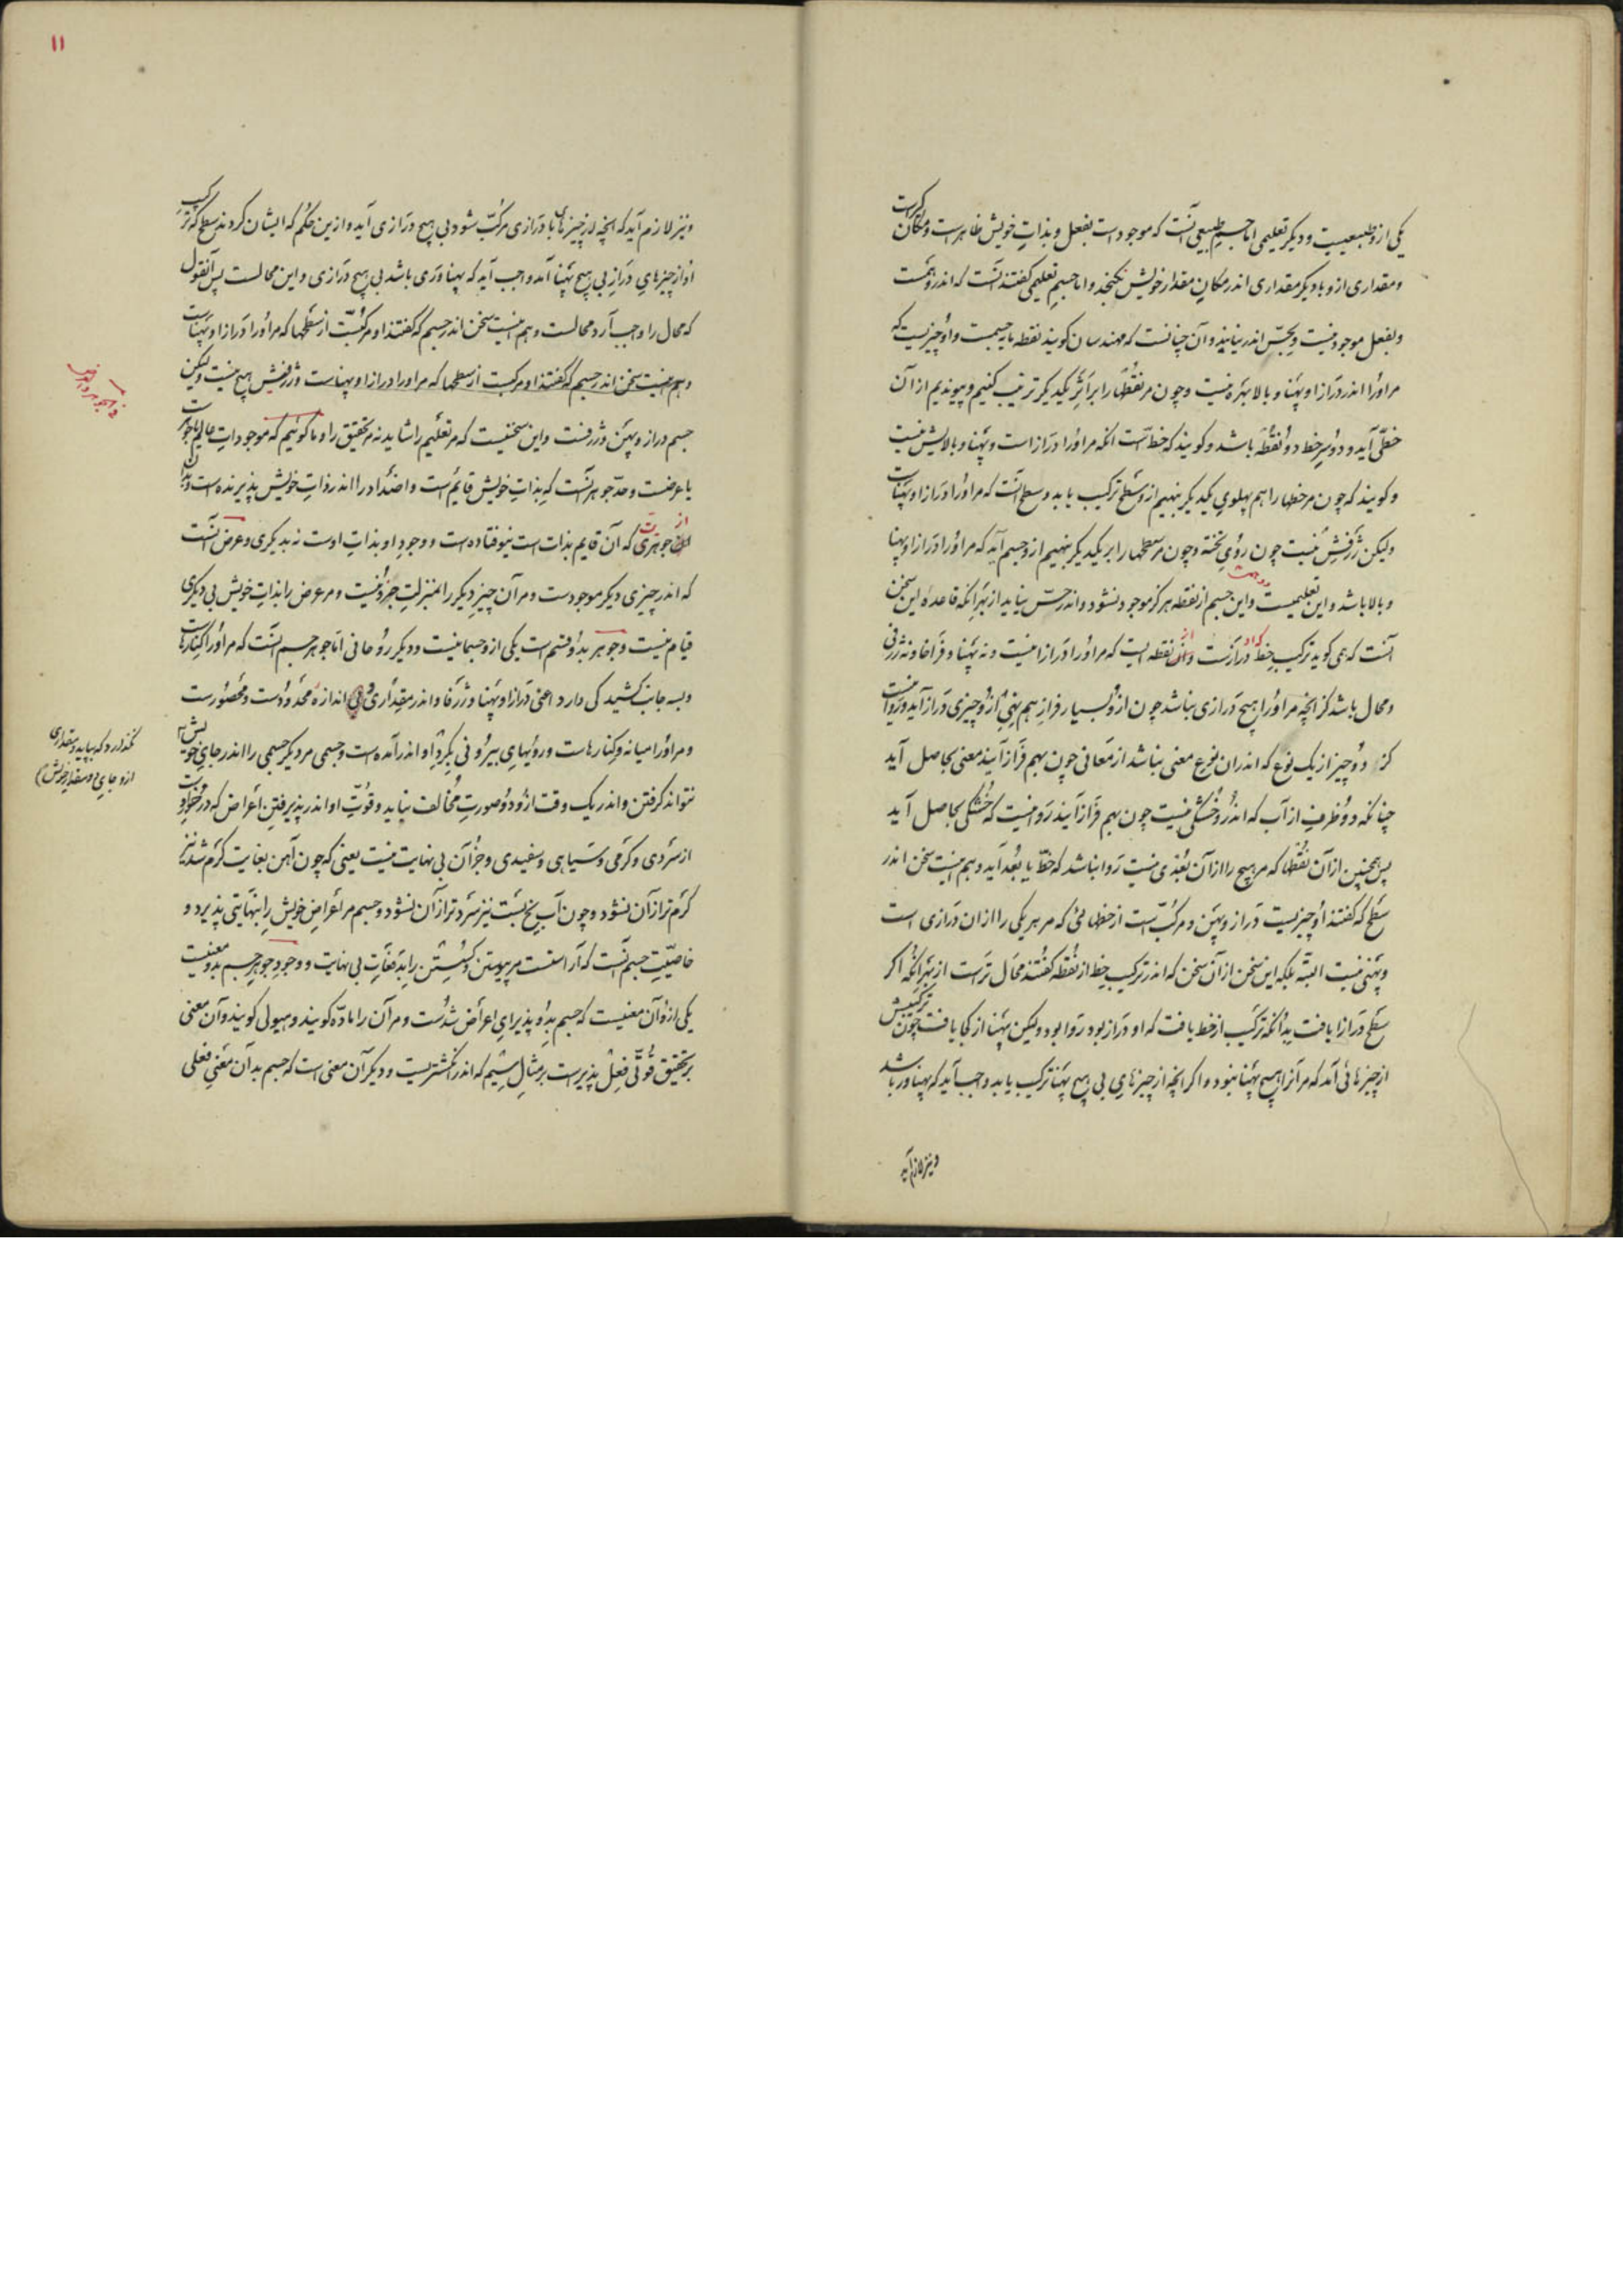 یکی ازو طبیعیست و دیگر تعلیمی اما جسم طبیعی آنست که موجود است بفعل و بذات خویش ظاهر است و مکان گیرست
و مقداری ازو با دیگر مقداری اندر مکان مقدار خویش نگنجد و اما جسم تعلیمی گفتند آنست که اندر وهمست
و بفعل موجود نیست و بحس اندر نیاید و آن چنانست که مهندسان گویند نقطه مایه جسمست و او چیزیست که
مر اورا اندر درازا و پهنا و بالا بهره نیست و چون مر نقطها را بر اثر یکدیگر ترتیب کنیم و بپیوندیم از آن
خطی آید و دو سر خط دو نقطه باشد و گویند که خط است آنکه مر اورا درازا است و پهنا و بالایش نیست
و گویند که چون مر خطها را هم پهلوی یکدیگر بنهیم ازو سطح ترکیب یابد و سطح آنست که مر اورا درازا و پهناست
ولیکن ژرفیش نیست چون روی تخته و چون مر سطحها را بر یکدیگر بنهیم ازو جسم آید که مر اورا درازا و پهنا
و بالا باشد و این تعلیمیست و این جسم از نقطه هرگز موجود نشود و اندر حس نیاید از بهر آنکه قاعدهٔ این سخن
آنست که همی گوید ترکیب خط که او درازست از نقطه ایست که مر اورا درازا نیست و نه پهنا و فراخا و نه ژرفی
و محال باشد کز آنچه مر اورا هیچ درازی نباشد چون ازو بسیار فراز هم نهی ازو چیزی دراز آید و روا نیست
کز دو چیز از یک نوع که اندران نوع معنی نباشد از معانی چون بهم فراز آیند معنی بحاصل آید
چنانکه دو ظرف از آب که اندرو خشکی نیست چون بهم فراز آیند روا نیست که خشکی بحاصل آید
پس همچنین از آن نقطها که مر هیچ را از آن بعدی نیست روا نباشد که خط با بعد آید و هم اینست سخن اندر
سطح که گفتند او چیزیست دراز و پهن و مرکب است از خطهائی که مر هر یکی را ازان درازی است
و پهنی نیست البته بلکه این سخن از آن سخن که اندر ترکیب خط از نقطه گفتند محال تر است از بهر آنکه اگر
سطح درازا یافت بدانکه ترکیب از خط یافت که او دراز بود روا بود ولیکن پهنا از کجا یافت چون ترکیبش
از چیزهائی آمد که مر آنرا هیچ پهنا نبود و اگر آنچه از چیزهای بی هیچ پهنا ترکیب یابد واجب آید که پهناور باشد
و نیز لازم آید
۱۱
و نیز لازم آید که آنچه از چیزهای با درازی مرکب شود بی هیچ درازی آید و ازین حکم که ایشان کردند سطح که ترکیب
او از چیزهای دراز بی هیچ پهنا آمد واجب آید که پهناوری باشد بی هیچ درازی و این محالست پس آنقول
که محال را واجب آرد محالست و هم اینست سخن اندر جسم که گفتند او مرکب است از سطحها که مر اورا درازا و پهناست
و هم اینست سخن اندر جسم که گفتند او مرکبست از سطحها که مر اورا درازا و پهناست و ژرفیش هیچ نیست ولیکن
جسم دراز و پهن و ژرفست و این سخنیست که مر تعلیم را شاید نه مر تحقیق را و ما گوئیم که موجودات عالم یا جوهرست
یا عرضست و حد جوهر آنست که بذات خویش قایم است و اضداد را اندر ذات خویش پذیرنده است
جوهری که آن قایم بذات است نیوفتاده است و وجود او بذات اوست نه بدیگری و عرض آنست
که اندر چیزی دیگر موجودست و مر آن چیز دیگر را بمنزلت جزو نیست و مر عرض را بذات خویش بی دیگری
قیام نیست و جوهر بدو قسم است یکی ازو جسمانیست و دیگر روحانی اما جوهر جسم آنست که مر اورا کنارهاست
و بسه جانب کشیدگی دارد اعنی درازا و پهنا و ژرفا و اندر مقداری و اندازه محدودست و محصورست
و مر اورا میانه و کنارهاست و رویهای بیرونی بگرد او اندر آمده است و جسمی مر دیگر جسمی را اندر جای خویش
نتواند گرفتن و اندر یک وقت ازو دو صورت مخالف نیاید و قوت او اندر پذیرفتن اعراض که درخور اوست
از سردی و گرمی و سیاهی و سفیدی و جز آن بی نهایت نیست یعنی که چون آهن بغایت گرم شد نیز
گرم تر از آن نشود و چون آب یخ بست نیز سرد تر از آن نشود و جسم مر اعراض خویش را بنهایتی پذیرد و
خاصیت جسم آنست که آراستست مر پیوستن و گسستن را بدفعات بی نهایت و وجود جوهر جسم بدو معنیست
یکی ازو آن معنیست که جسم بدو پذیرای اعراض شدست و مر آن را ماده گویند و هیولی گویند و آن معنی
بر تحقیق قوتی فعل پذیر است بر مثال سیم که اندر انگشتریست و دیگر آن معنی است که جسم بدآن معنی فعلی
نگذارد که بیاید و مقداری
ازو جای دو مقدار خویش